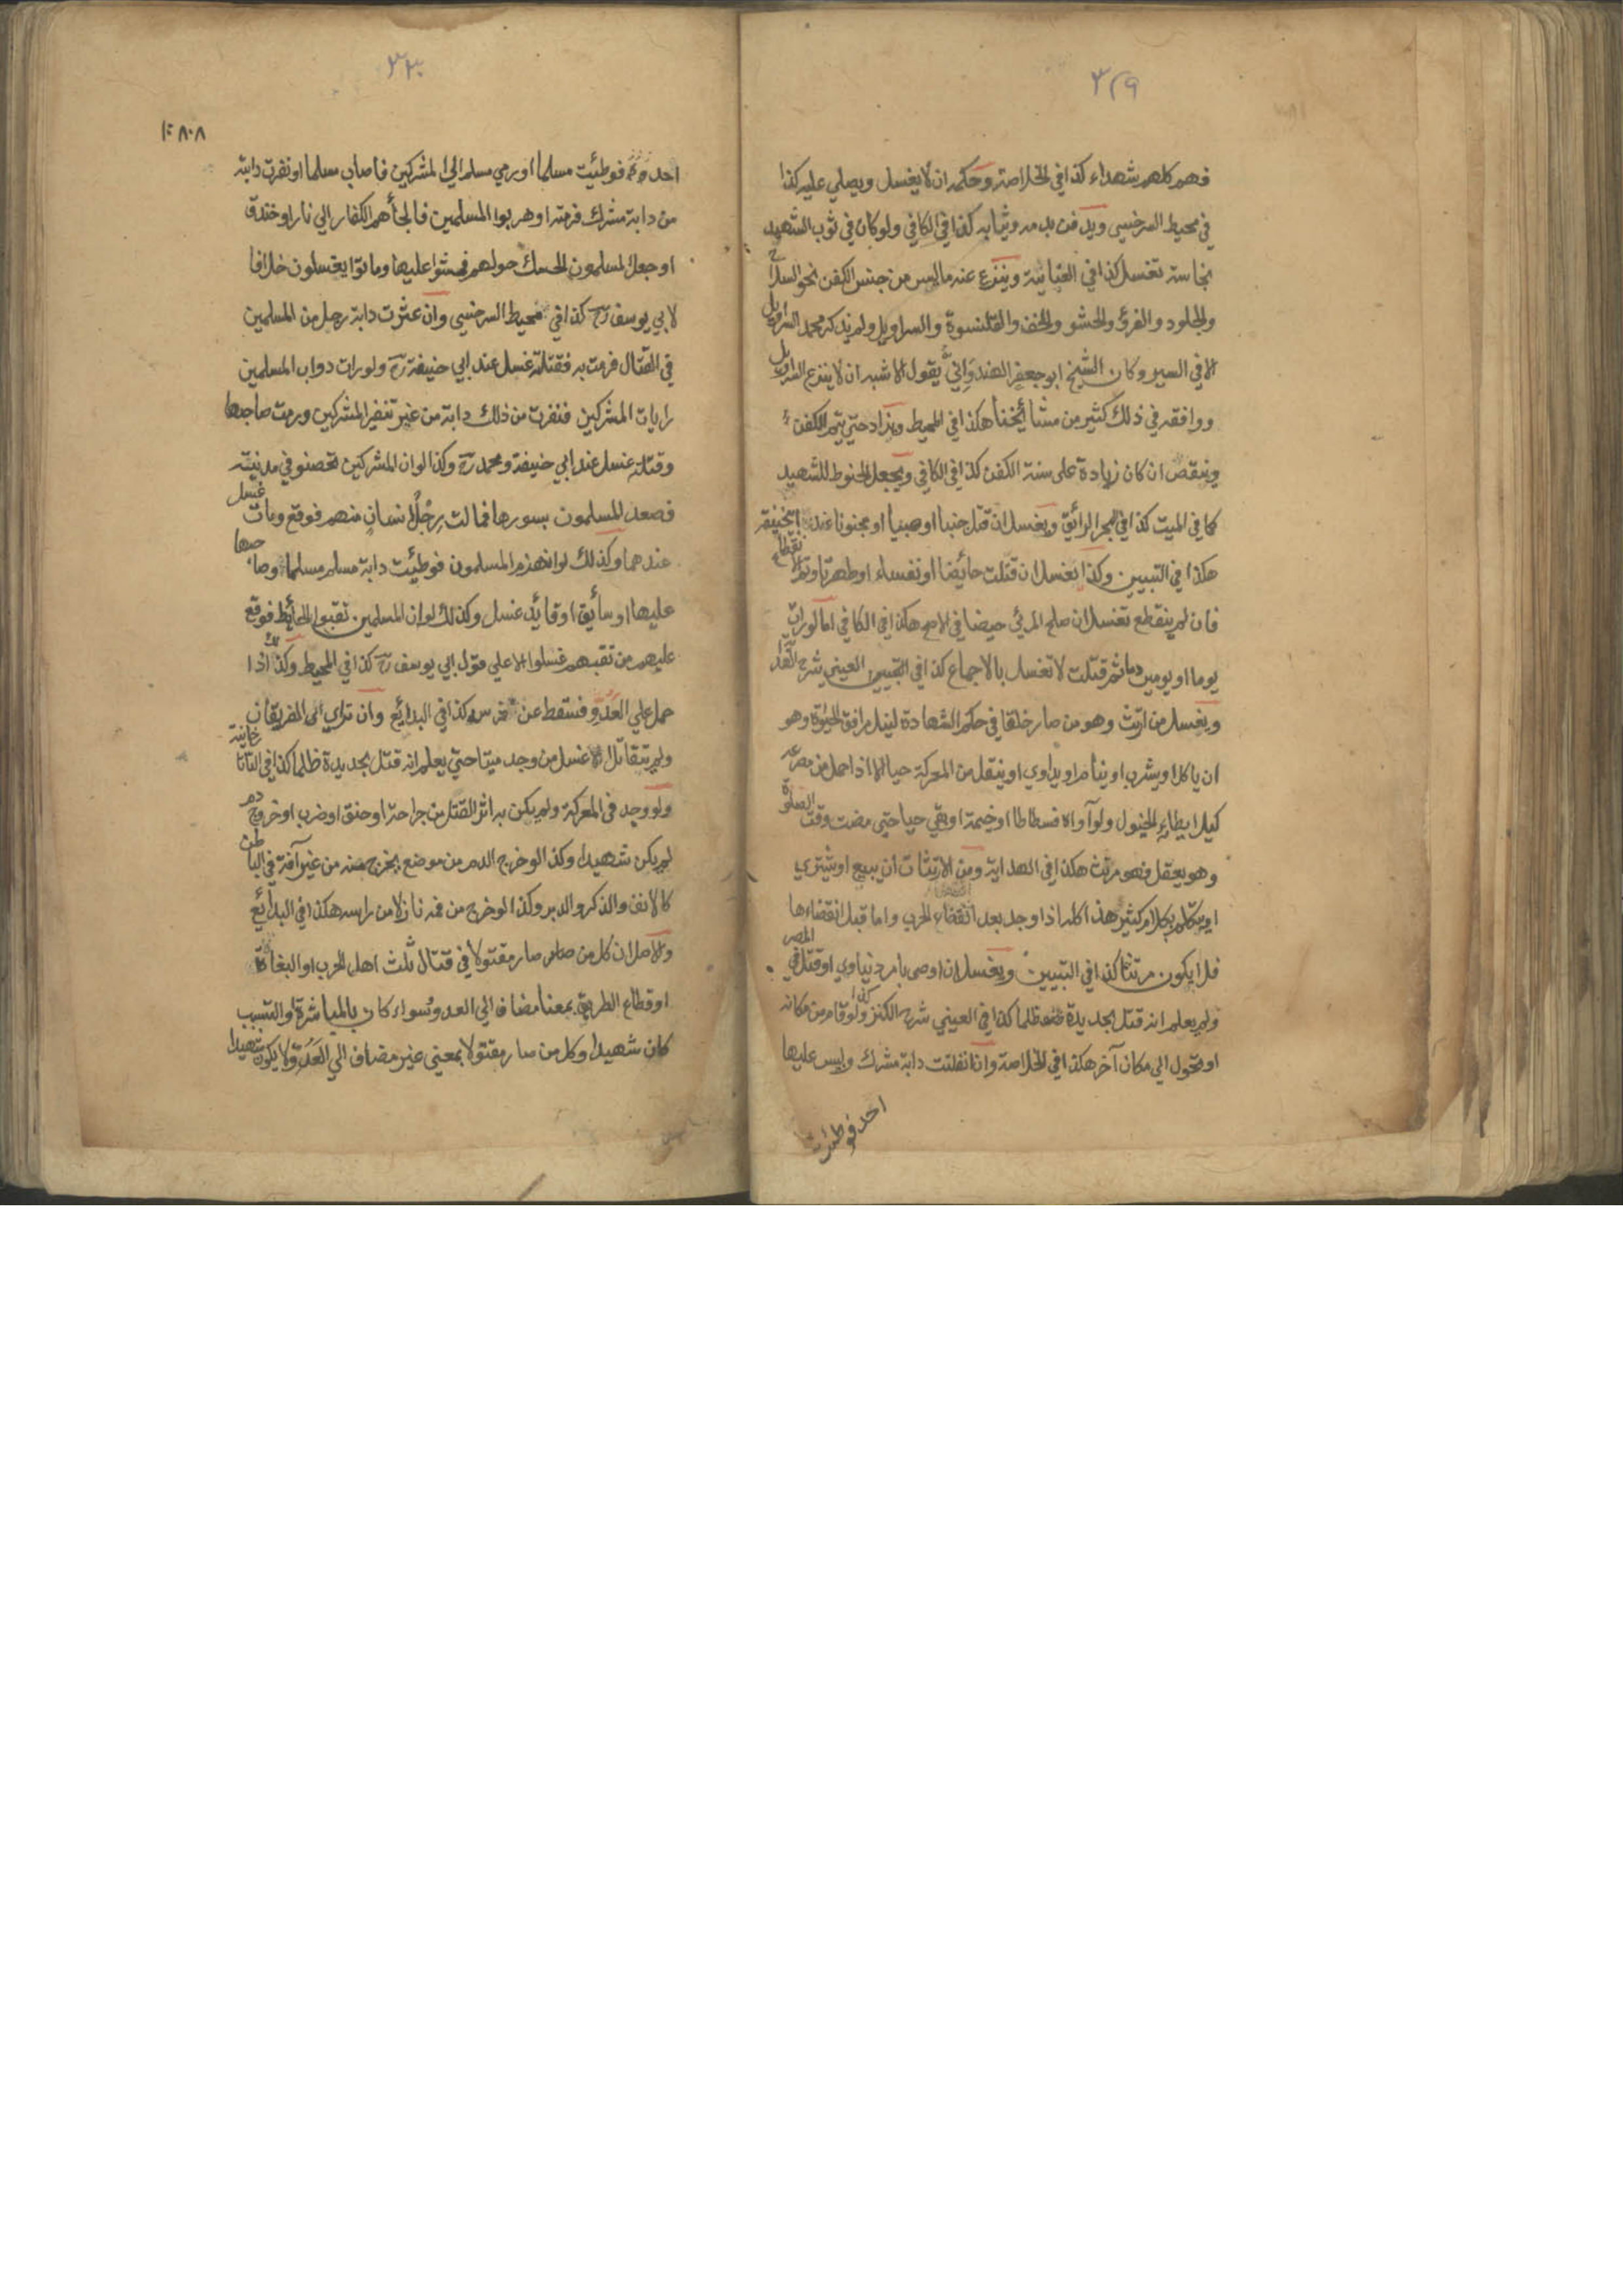 ٣٢٩
فهم كلهم شهداء كذا في الخلاصة وحكمه ان لا يغسل ويصلي عليه كذا
في محيط السرخسي ويدفن بدمه وثيابه كذا في الكافي ولو كان في ثوب الشهيد
نجاسة تغسل كذا في العتابية وينزع عنه ما ليس من جنس الكفن نحو السلاح
والجلود والفرو والحشو والخف والقلنسوة والسراويل ولم يذكر محمد السراويل
الا في السير وكان الشيخ ابو جعفر الهندواني يقول الاشبه ان لا ينزع السراويل
ووافقه في ذلك كثير من مشائخنا هكذا في المحيط ويزاد حتي يتم الكفن
وينقص ان كان زيادة علي سنة الكفن كذا في الكافي ويجعل الحنوط للشهيد
كما في الميت كذا في البحر الرائق ويغسل ان قتل جنبا او صبيا او مجنونا عند ابيحنيفة
هكذا في التبيين وكذا يغسل ان قتلت حائضا او نفساء او طهرتا وتم الانقطاع
فان لم ينقطع تغسل ان صلح المرئي حيضا في الاصح هكذا في الكافي اما لو رات
يوما او يومين دما ثم قتلت لا تغسل بالاجماع كذا في التبيين العيني شرح
ويغسل من ارتث وهو من صار خلقا في حكم الشهادة لنيل مرافق الحيوة وهو
ان ياكل او يشرب او ينام او يداوي او ينقل من المعركة حيا الا اذا حمل من مصرعه
كيلا يطاء الخيول ولو آواه فسطاطا او خيمة او بقي حيا حتي مضت وقت الصلوة
وهو يعقل فهو مرتث هكذا في الهداية ومن الارتثاث ان يبيع او يشتري
او يتكلم بكلام كثير هذا كله اذا وجد بعد انقضاء الحرب واما قبل انقضاءها
فلا يكون مرتثا كذا في التبيين ويغسل ان اوصي بامر دنياوي او قتل في المصر
ولم يعلم انه قتل بحديدة ظلما كذا في العيني شرح الكنز وكذا لو قام من مكانه
او تحول الي مكان آخر هكذا في الخلاصة وان انفلتت دابة مشرك وليس عليها
احد فوطئت
٣٣٠
٨٠٨
احد فوطئت مسلما او رمي مسلم الي المشركين فاصاب مسلما او نفرت دابة
من دابة مشرك فرمته او هربوا المسلمين فالجأهم الكفار الي نار او خندق
او جعل المسلمون الحسك حولهم فمشوا عليها وماتوا يغسلون خلافا
لابي يوسف رح كذا في محيط السرخسي وان عثرت دابة رجل من المسلمين
في القتال فرمت به فقتلته غسل عند ابي حنيفة رح ولو رات دواب المسلمين
رايات المشركين فنفرت من ذلك دابة من غير تنفير المشركين ورمت صاحبها
وقتلته غسل عند ابي حنيفة ومحمد رح وكذا لو ان المشركين تحصنو في مدينة
فصعد المسلمون بسورها فمالت رجل انسان منهم فوقع ومات غسل
عندهما وكذلك لو انهزم المسلمون فوطئت دابة مسلم مسلما وصاحبها
عليها او سائق او قائد غسل وكذلك لو ان المسلمين نقبوا الحائط فوقع
عليهم من نقبهم غسلوا الا علي قول ابي يوسف رح كذا في المحيط وكذلك اذا
حمل علي العدو فسقط عن فرسه كذا في البدائع وان تراي الفريقان
ولم يتقاتلا غسل من وجد ميتا حتي يعلم انه قتل بحديدة ظلما كذا في التاتارخانية
ولو وجد في المعركة ولم يكن به اثر القتل من جراحة او خنق او ضرب او خروج دم
لم يكن شهيدا وكذا لو خرج الدم من موضع يخرج منه من غير آفة في الباطن
كالانف والذكر والدبر وكذا لو خرج من فمه نازلا من راسه هكذا في البدائع
والاصل ان كل من صار مقتولا في قتال ثلث اهل الحرب او البغاة
او قطاع الطريق بمعنا مضاف الي العدو سواء كان بالمباشرة او التسبب
كان شهيدا وكل من صار مقتولا بمعني غير مضاف الي العدو لا يكون شهيدا